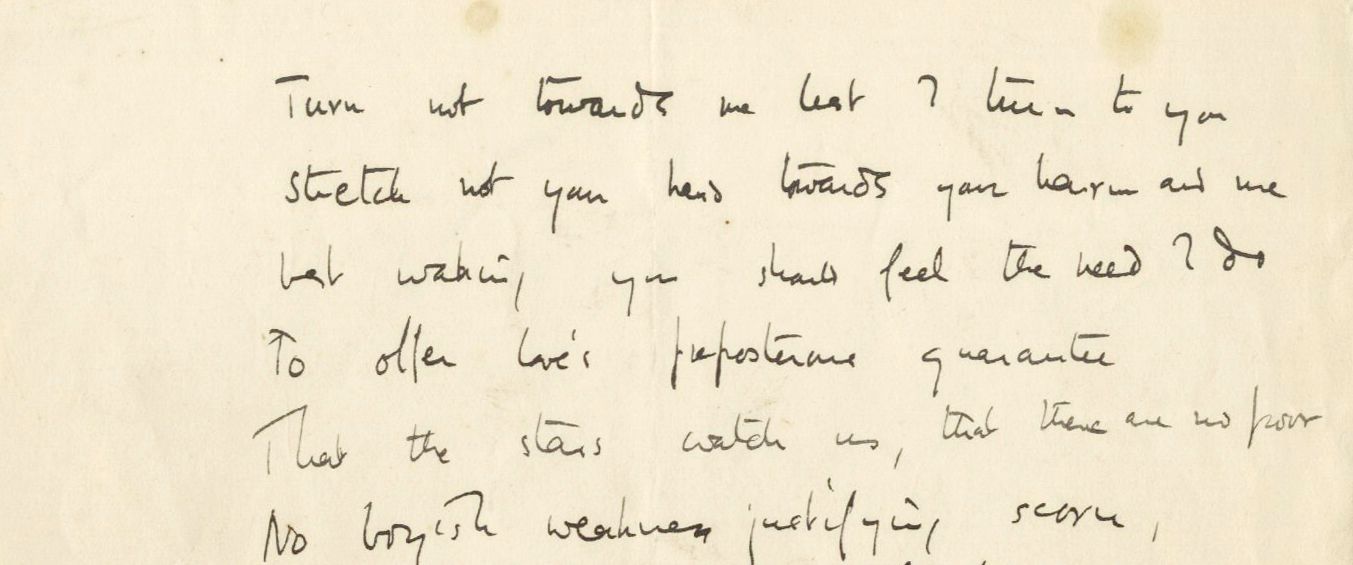 Turn not towards me lest I turn to you
Stretch not your hand towards your harm and me
Lest waking you should feel the need I do
To offer love's preposterous guarantee
That the stars watch us, that there are no poor
No boyish weakness justifying scorn,